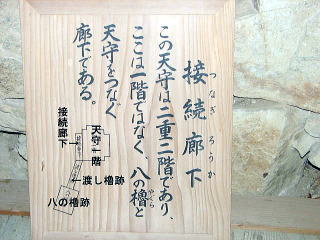 接続廊下
つなぎろうか
この天守は二重二階であり、
ここは一階ではなく、八の櫓と
やぐら
天守をつなぐ
廊下である。
天守一階
接続廊下
渡し櫓跡
八の櫓跡